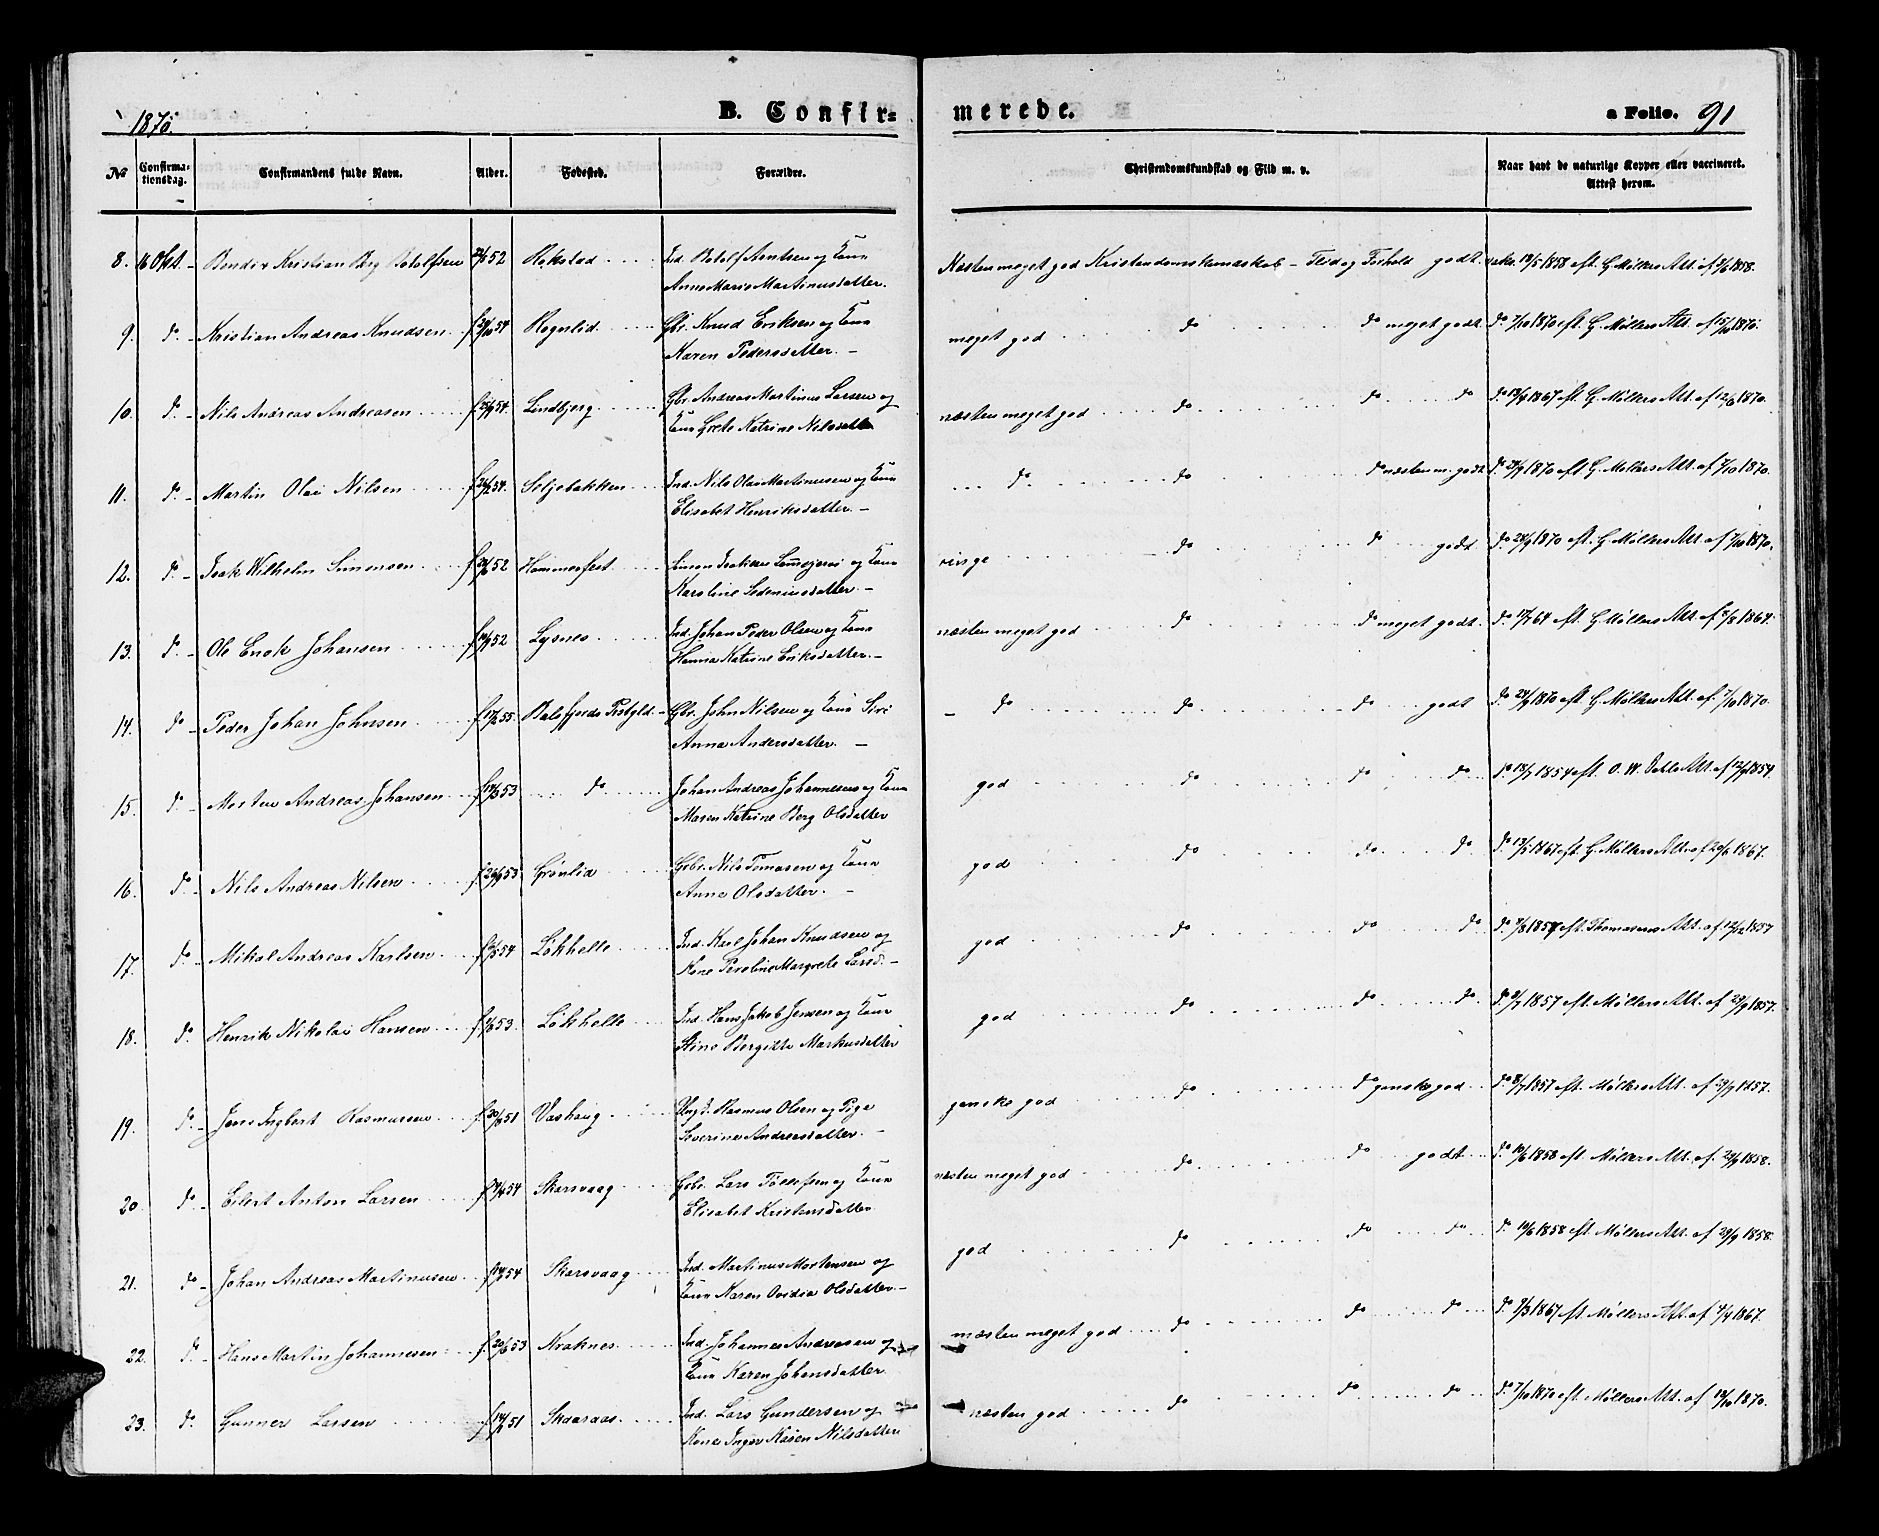 1870.
B. Confir=
merede.
a Folio. 91
No
Confirma-
tionsdag.
Confirmandens fulde Navn.
Alder.
Fødested.
Forældre.
Christendomskundskab og Flid m. v.
Naar havt de naturlige Kopper eller vaccineret.
Attest herom.
8. 16 Okt. Kristian Berg Botolfsen 52 Ind. Botolf Arntsen og Kone
Anne Marie Martinusdatter.
Næsten meget god Kristendomskundskab - Flid og Forhold godt 1858 eft. G. Møllers Att. af 1858.
9. do Kristian Andreas Knudsen f. 54 Rognlid Gbr. Knud Eriksen og Kone
Karen Pedersdatter.
meget god do do meget godt do 7/10 1870 eft. G. Møllers Att. af 15/10 1870.
10. do Nils Andreas Andreasen f. 54. Lindbjerg Gbr. Andreas Martinus Larsen og
Kone Grete Katrine Nilsdatter
næsten meget god do do do do 1867 eft. G. Møllers Att. af 1870.
11. do Martin Olai Nilsen f. 54. Seljebakken Ind. Nils Olai Martinussen og Kone
Elisabet Henriksdatter.
do do do næsten m. godt do 28/9 1870 eft G. Møllers Att. af 7/10 1870.
12. do Isak Wilhelm Simonsen f. 52 Hammerfest Simon Isaksen og Kone
Karoline
ringe do do godt do 28/9 1870 eft. G. Møllers Att. af 7/10 1870.
13. do Ole Enok Johansen f. 52 Lysnes Ind. Johan Peder Olsen og Kone
Hanna Katrine Eriksdatter.
næsten meget god do do meget godt. do 64 eft. G. Møllers Att. af 1864.
14. do Peder Johan Johnsen f. 55. Balsfjords Prstgld. Gbr. John Nilsen og Kone Siri
Anna Andersdatter.
do do do godt do 28/9 1870 eft. G. Møllers Att. af 7/10 1870.
15. do Morten Andreas Johansen f. 53 do Johan Andreas Johannesen og Kone
Maren Katrine Berg Olsdatter
god do do do do 1854 eft. O. W. Att. af 1854.
16. do Nils Andreas Nilsen f. 53 Grønlid Gbr. Nils Tomasen og Kone
Anne Olsdatter.
god do do do do 1867 eft. G. Møllers Att. af 1867.
17. do Mikal Andreas Karlsen f. 54 Løkhelle Ind. Karl Johan Knudsen og
Kone Margrete Larsd.
god do do do do eft. Thomasens Att. af 1857
18. do Henrik Nikolai Hansen f. 53. Løkhelle Ind. Hans Jakob Jensen og Kone
Stine Bergitte Markusdatter
god do do do do 1857 eft. Møllers Att. af 29/9 1857.
19. do Jens Ingbert Rasmussen f. 51 Vashaug Ungd. Rasmus Olsen og Pige
Severine Andreasdatter.
ganske god do do ganske god do 8/7 1857 eft. Møllers Att. af 29/9 1857.
20. do Eilert Anton Larsen f. 54 Skarsvaag Gbr. Lars Tollefsen og Kone
Elisabet Kristensdatter
næsten meget god do do godt do 1858 eft. Møllers Att. af 29/9 1858.
21. do Johan Andreas Martinusen f. 54 Skarsvaag Ind. Martinus Mortensen og
Kone Karen Ovidia Olsdatter
god do do do do 1858 eft. Møllers Att. af 29/9 1858.
22. do Hans Martin Johannesen f. 53 Kraknes Ind. Johannes Andreasen og
Kone Karen Johansdatter
næsten meget god do do do do 9/3 1867 eft. Møllers Att. af 4/4 1867.
23. do Gunner Larsen f. 51 Skaaraas Ind. Lars Gundersen og
Kone Inger Karen Nilsdatter
næsten god do do do do 7/10 1870 eft. Møllers Att. af 1870.